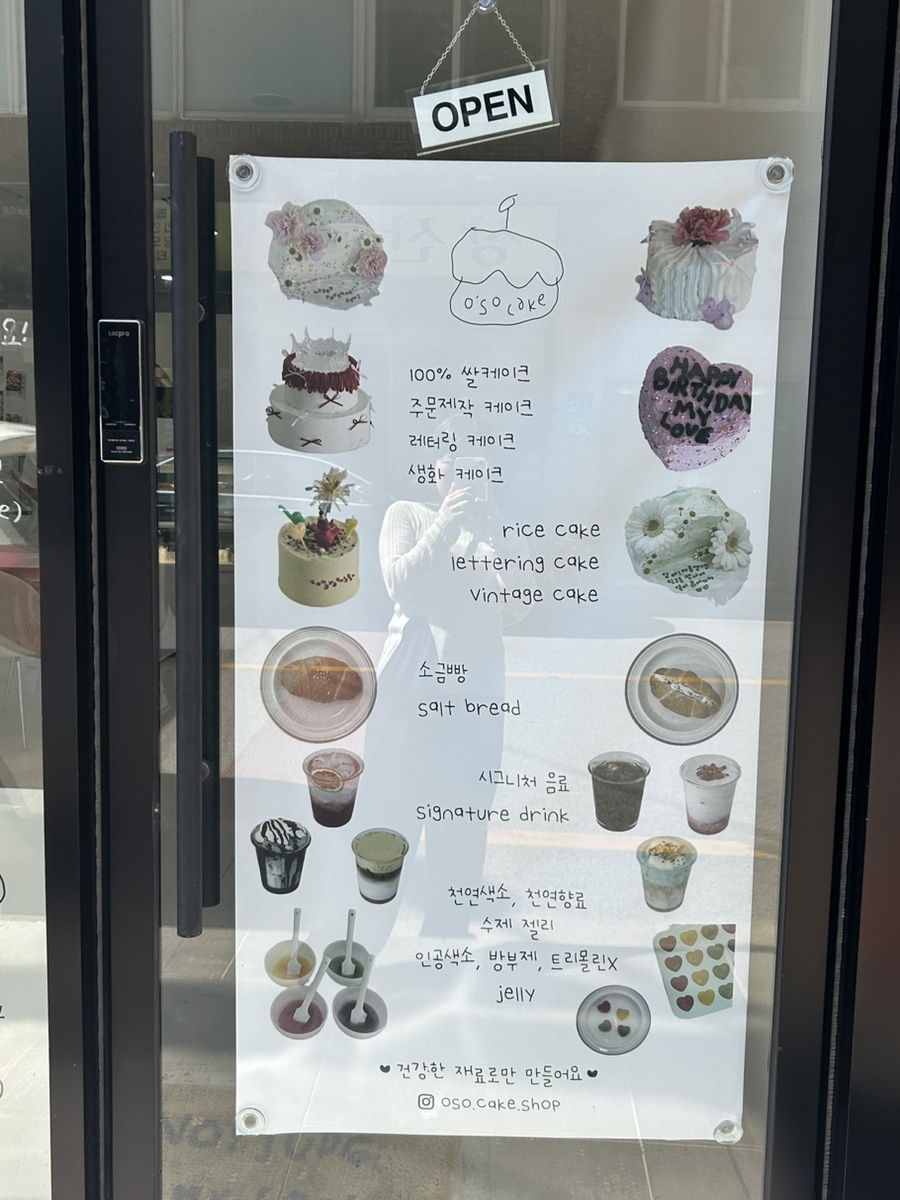 OPEN
o'so cake
100% 쌀케이크
주문제작 케이크
레터링 케이크
생화 케이크
HAPPY
BIRTHDAY
MY
LOVE
rice cake
lettering cake
vintage cake
소금빵
salt bread
시그니처 음료
signature drink
천연색소, 천연향료
수제 젤리
인공색소, 방부제, 트리몰린X
jelly
♥ 건강한 재료로만 만들어요 ♥
oso.cake.shop